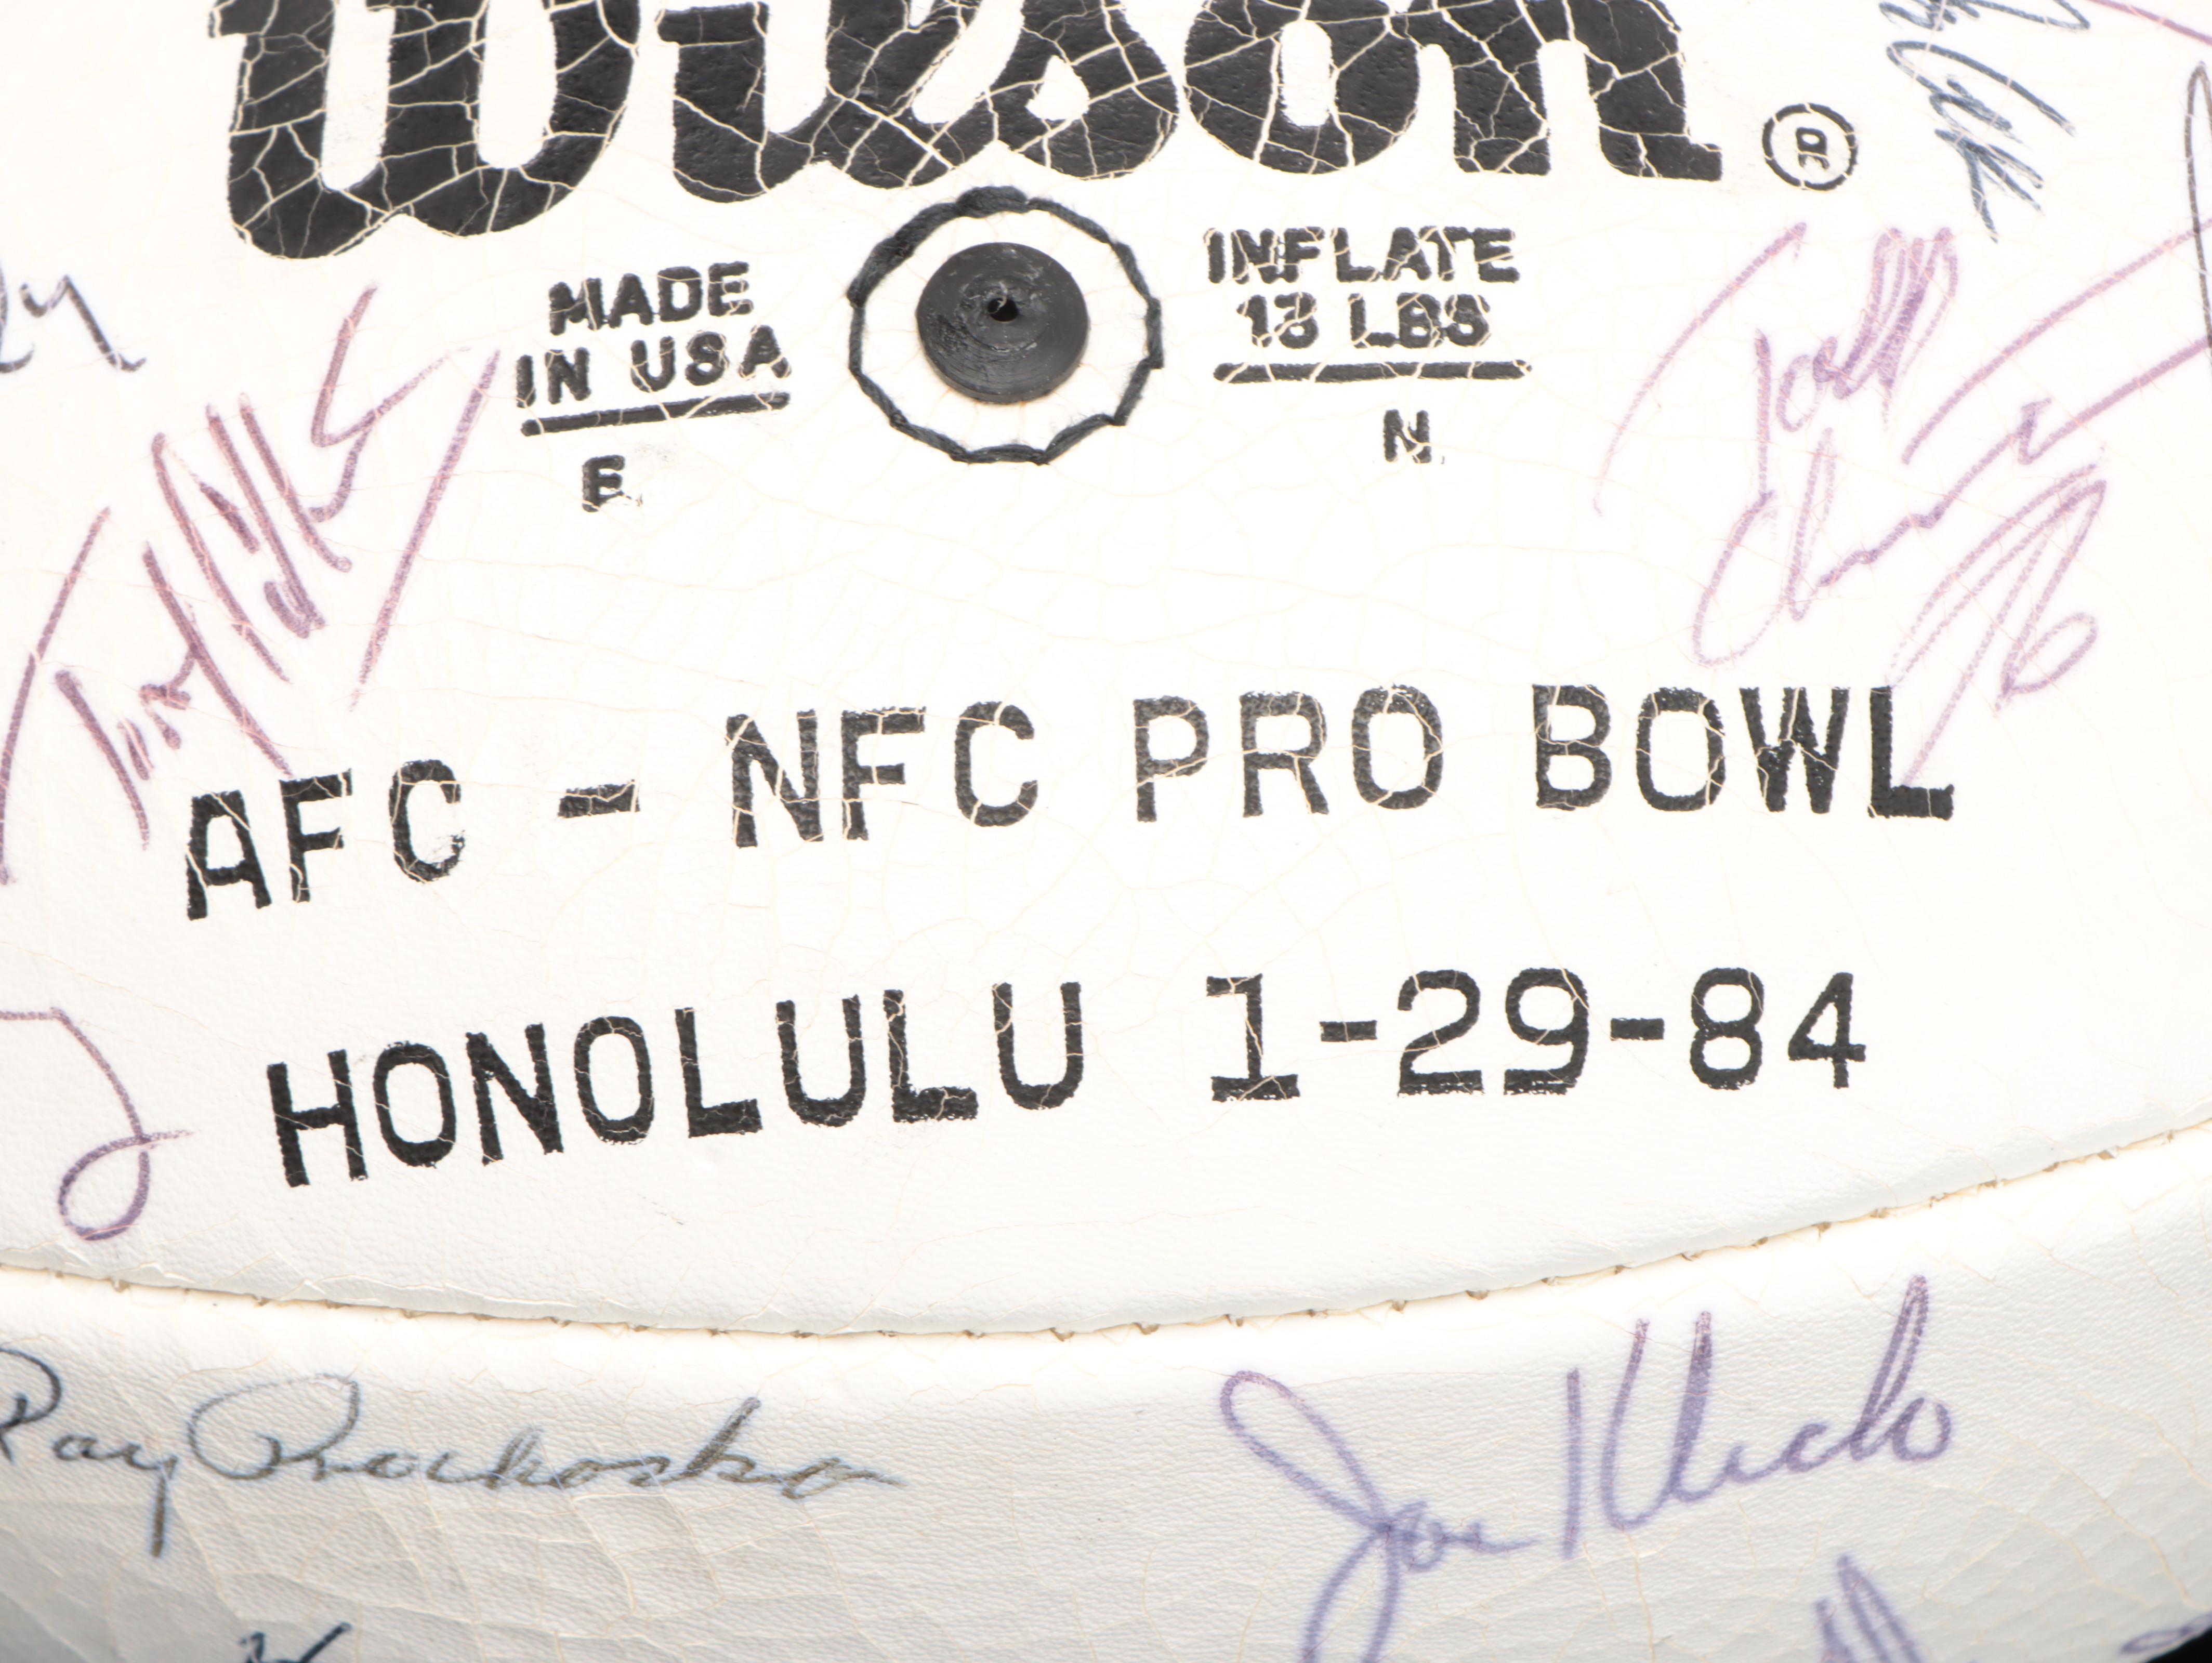 Wilson
®
MADE
IN USA
E
INFLATE
13 LBS
N
Todd
Christensen
AFC - NFC PRO BOWL
HONOLULU 1-29-84
Ray Prochaska
Joe Klecko